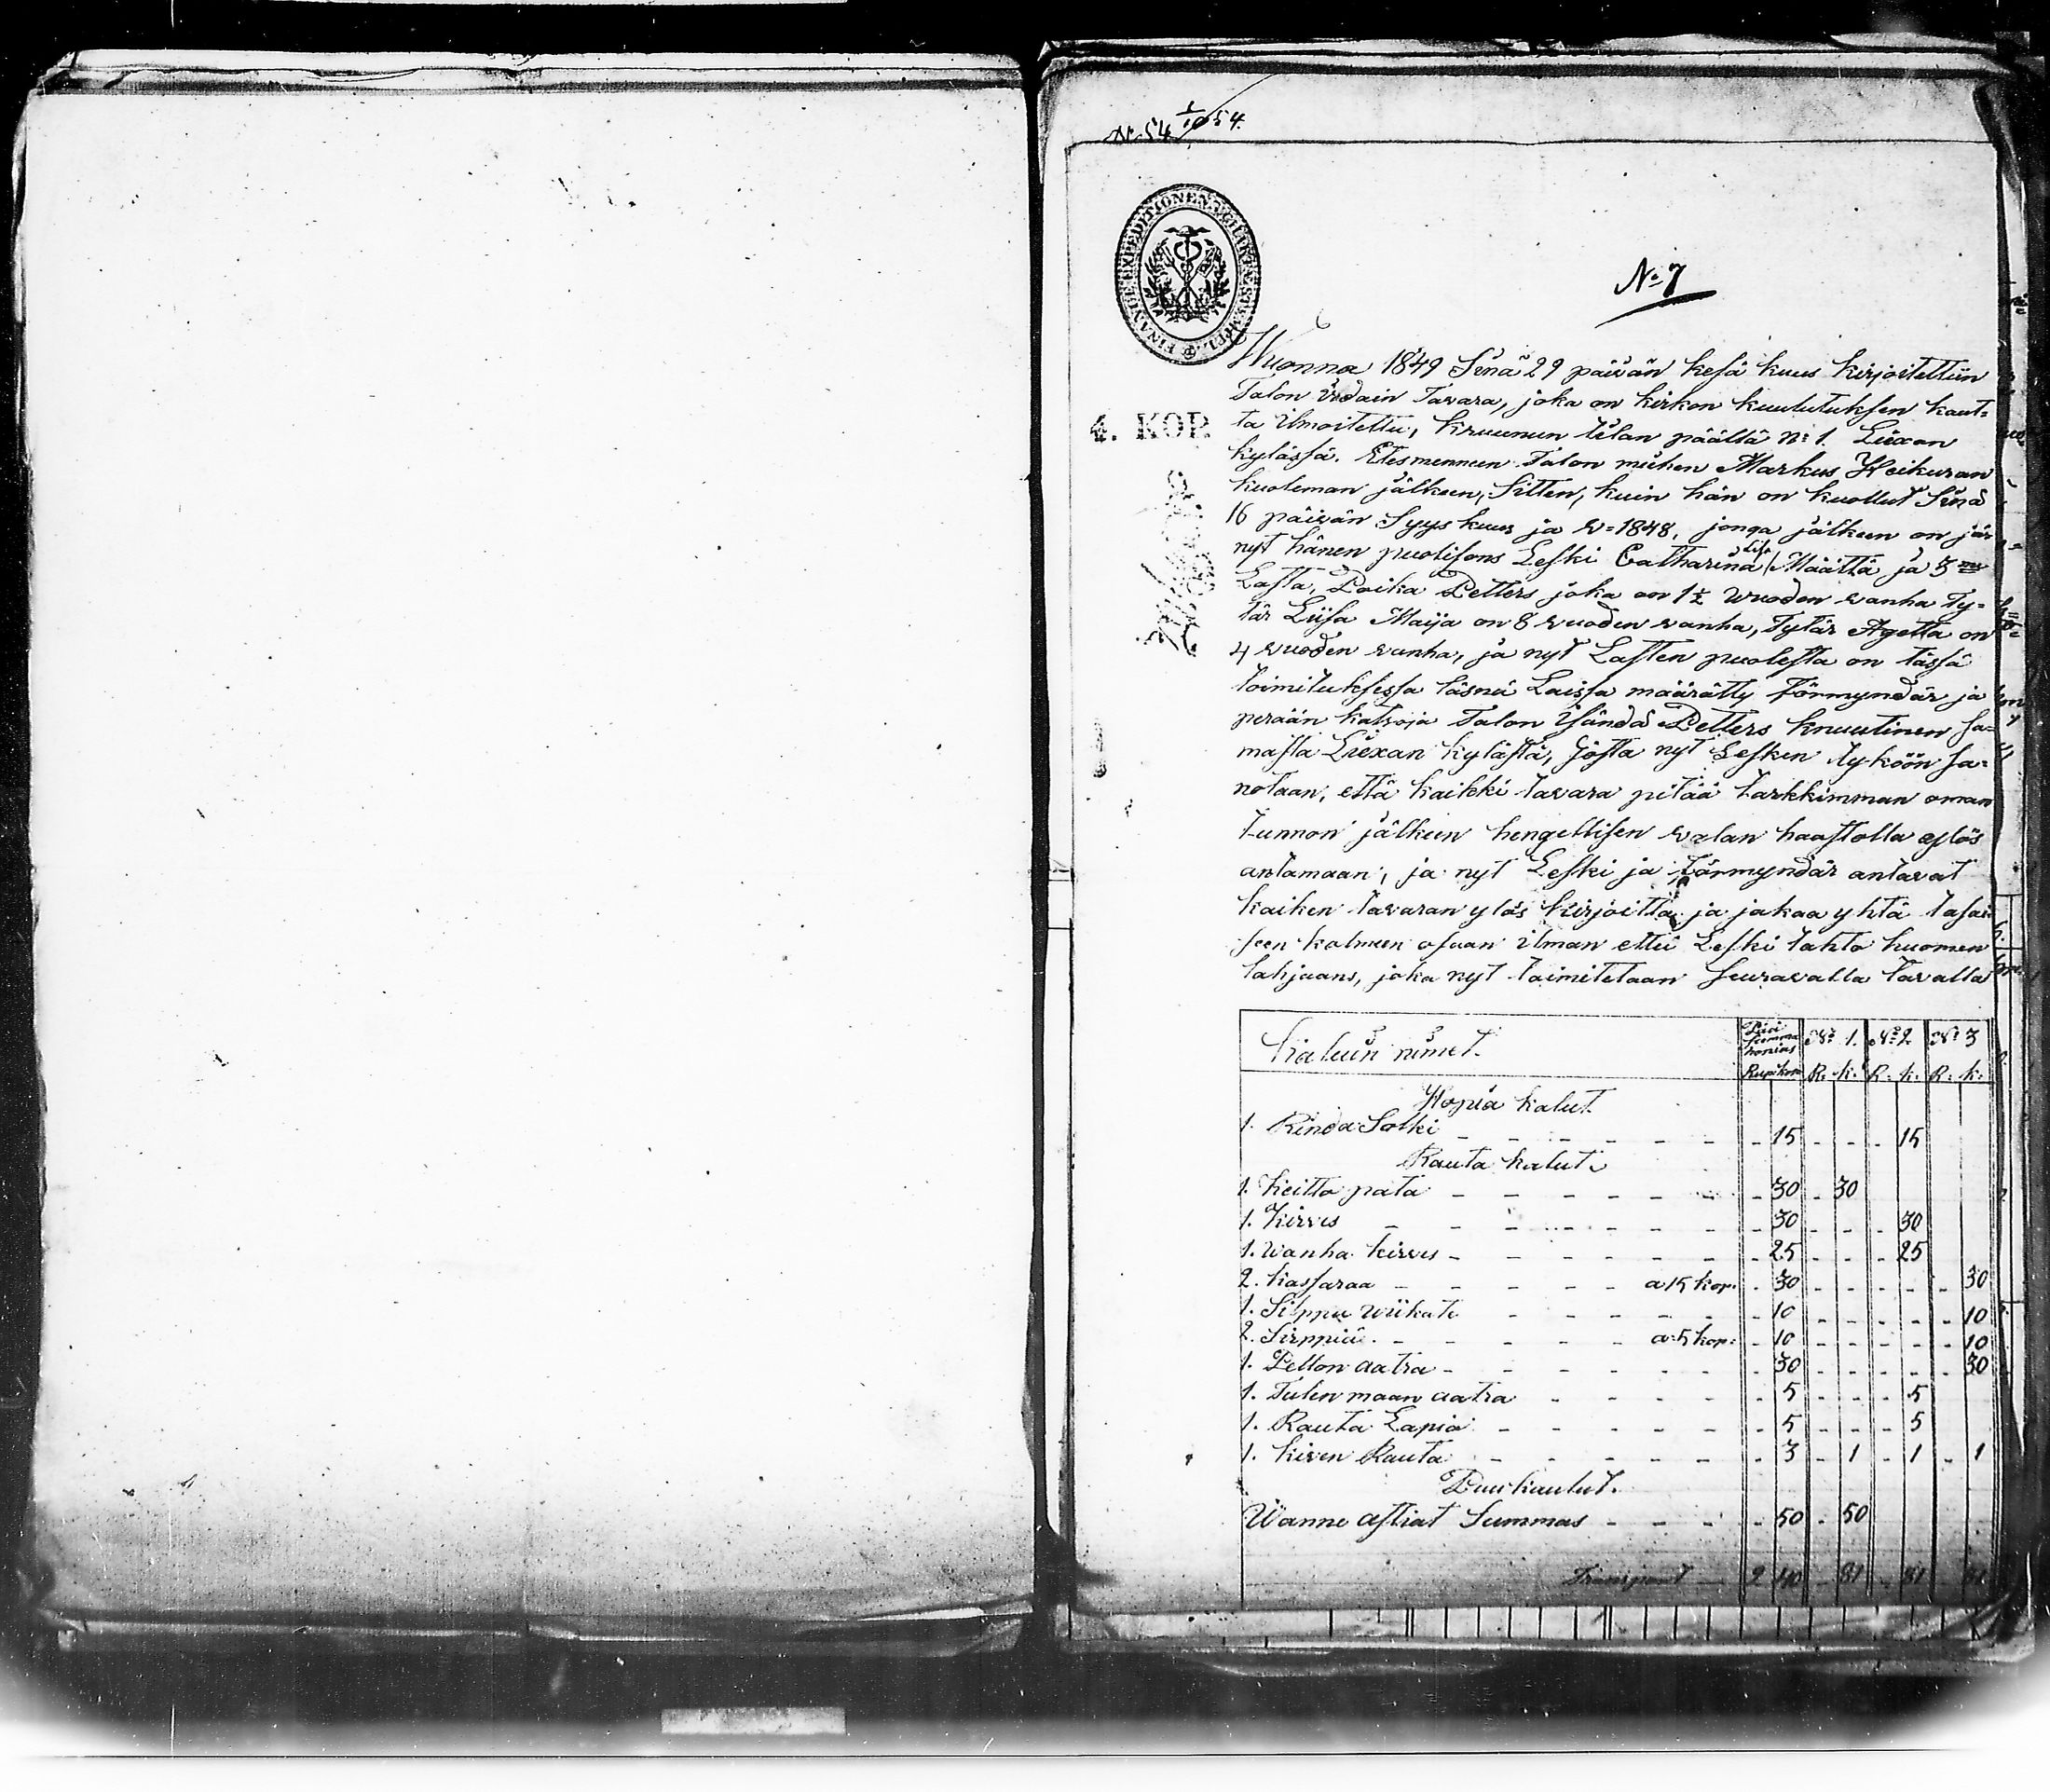 № 54 1/10 54.
FINANCE EXPEDITIONENS CHARTÆ STÄMPEL
№ 7
4. KOP.
Wuonna 1849 Sinä 29 päivän kesä kuus kirjoitettiin
Talon irdain Tavara, joka on kirkon kuulutuksen kaut=
ta ilmoitettu, kruunun tilan päältä N:o 1. Liexan
kylässä. Etesmennen Talon miehen Markus Heikuran
kuoleman jälkeen, Sitten, kuin hän on kuollut Sinä
16 päivän Syys kuus ja v=1848, jonga jälkeen on jää
nyt hänen puolisons Leski Catharina Lisa Määttä ja 3
Lasta, Poika Petters joka on 1½ Wuoden vanha Ty=
tär Liisa Maija on 8 vuoden vanha, Tytär Agetta on
4 vuoden vanha, ja nyt Lasten puolesta on tässä
toimituksessa läsnä Laissa määrätty Förmyndär ja
perään katsoja Talon isändä Petters Knuutinen sa=
masta Liexan kylästä, josta nyt Lesken tyköön sa=
notaan, että kaikki tavara pitää tarkkimman oman
tunnon jälkeen hengellisen valan haastolla ylös
antamaan, ja nyt Leski ja Förmyndär antavat
kaiken tavaran ylös kirjoitta ja jakaa yhtä tasai
seen kolmeen osaan ilman että Leski tahto huomen
lahjaans, joka nyt toimitetaan seuravalla tavalla
Kaluin nimet. Summa Rup: kop: № 1. R: k: № 2 R: k: № 3 R: k:
Hopia kalut.
1. Rinda Solki - 15 - - - 15
Rauta kalut.
1. Keitto pata - 30 - 30
1. Kirves - 30 - - - 30
1. Wanha kirves - 25 - - - 25
2. Kassaraa a 15 kop: - 30 - - - - - 30
1. Silppu wiikate - 10 - - - - - 10
2. Sirppiä. a 5 kop: - 10 - - - - - 10
1. Pellon aatra - 30 - - - - - 30
1. Tulen maan aatra - 5 - - - 5
1. Rauta Lapio - 5 - - - 5
1. Kiven Rauta - 3 - 1 - 1 - 1
Puu kaulut.
Wanne astiat Summas - 50 - 50
Transport - 2 40 - 81 - 81 81